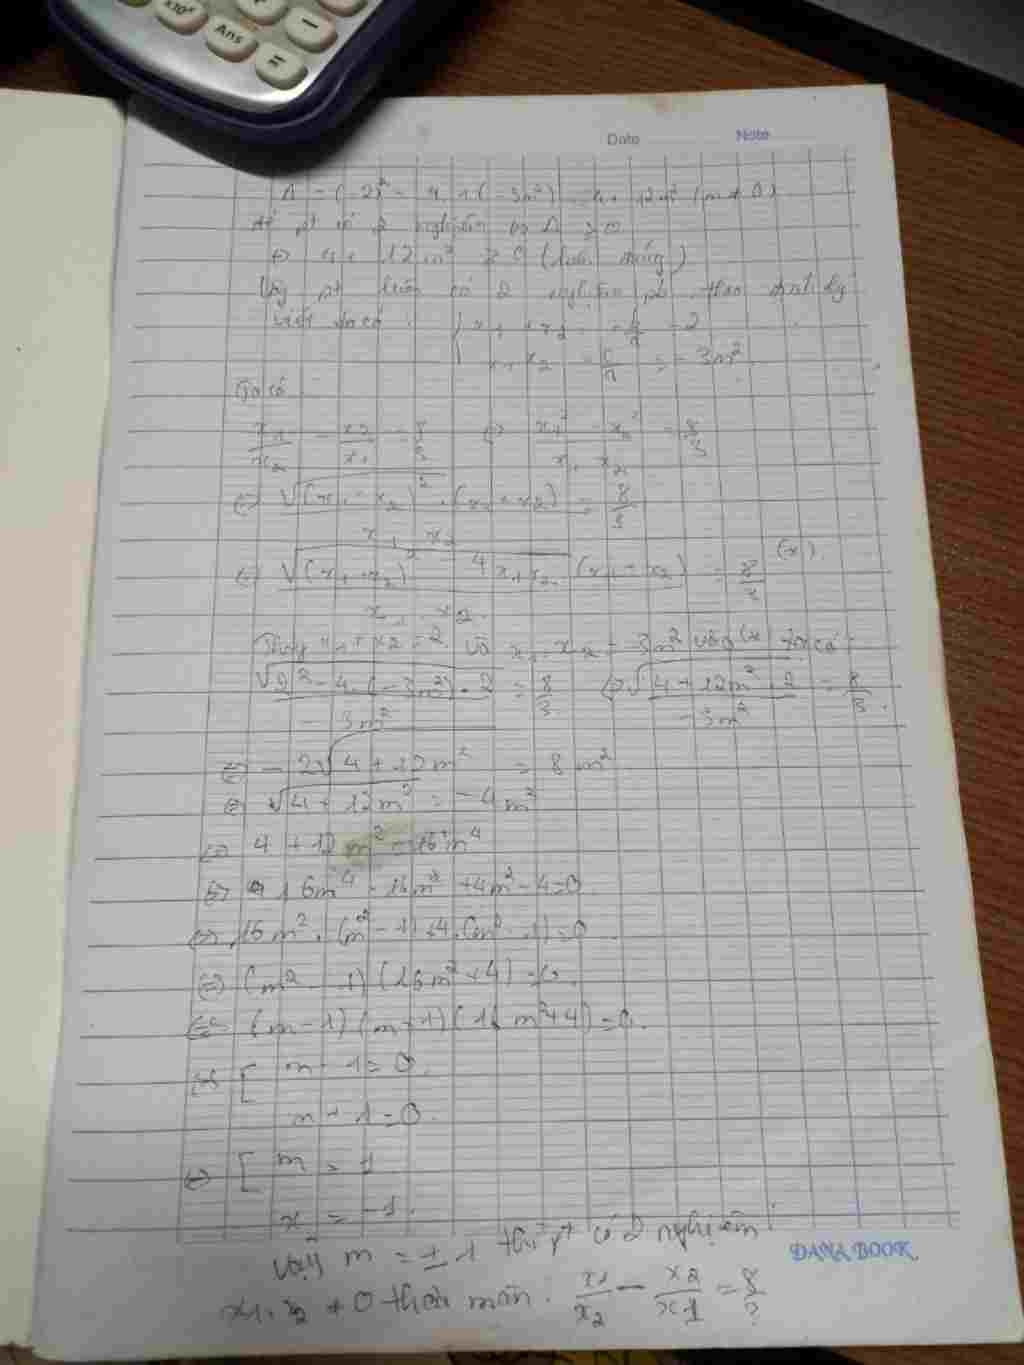 x10ˣ
Ans
=
Date
Note
Δ = (-2)² - 4.1.(-3m²) = 4 + 12m² (m ≠ 0)
Để pt có 2 nghiệm Δ ≥ 0
⇔ 4 + 12m² ≥ 0 (luôn đúng)
Vậy pt luôn có 2 nghiệm pb, theo định lý
viét ta có: { x₁ + x₂ = -b/a = 2
x₁ . x₂ = c/a = -3m²
Ta có
x₁/x₂ - x₂/x₁ = 8/3 ⇔ (x₁² - x₂²)/(x₁ . x₂) = 8/3
⇔ (√(x₁ - x₂)² . (x₁ + x₂))/(x₁ . x₂) = 8/3
⇔ (√((x₁ + x₂)² - 4x₁x₂) . (x₁ + x₂))/(x₁ . x₂) = 8/3 (*)
Thay x₁ + x₂ = 2 và x₁ . x₂ = -3m² vào (*) ta có:
(√(2² - 4.(-3m²)) . 2)/(-3m²) = 8/3 ⇔ (√(4 + 12m²) . 2)/(-3m²) = 8/3
⇔ -2√(4 + 12m²) = 8m²
⇔ √(4 + 12m²) = -4m²
⇔ 4 + 12m² = 16m⁴
⇔ 16m⁴ - 16m² + 4m² - 4 = 0
⇔ 16m² . (m² - 1) + 4.(m² - 1) = 0
⇔ (m² - 1)(16m² + 4) = 0
⇔ (m - 1)(m + 1)(16m² + 4) = 0
⇔ [ m - 1 = 0
m + 1 = 0
⇔ [ m = 1
x = -1
Vậy m = ±1 thì pt có 2 nghiệm
x₁, x₂ ≠ 0 thỏa mãn: x₁/x₂ - x₂/x₁ = 8/3
DANA BOOK